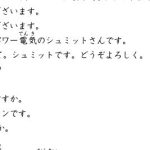 ざいます。
ざいます。
パワー電気のシュミットさんです。
て。シュミットです。どうぞよろしく。
すか。
ンです。
か。